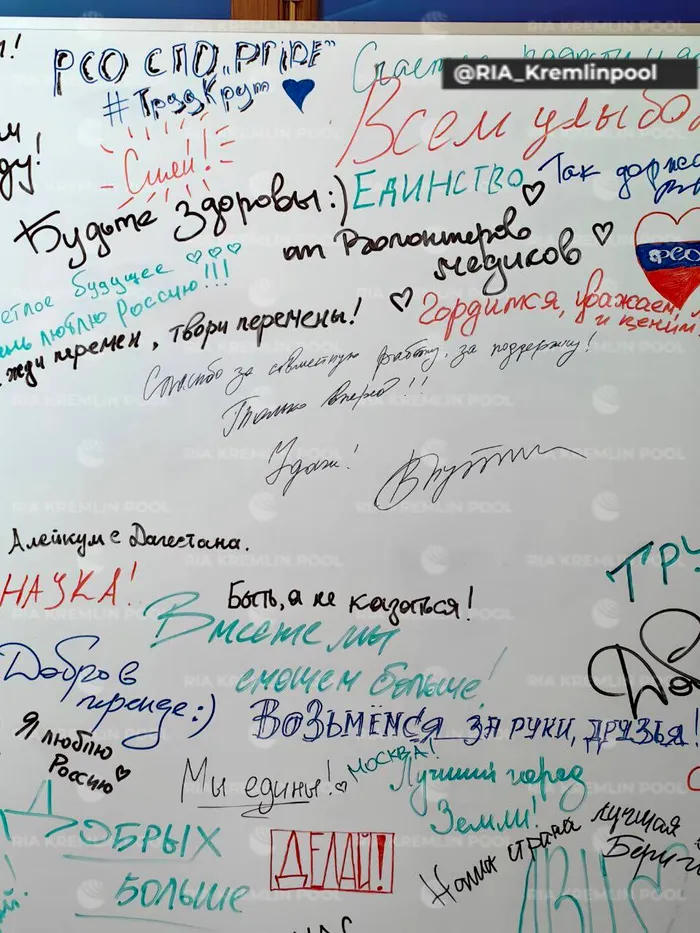 РСО СПО „PRIDE"
@RIA_Kremlinpool
#ТрудКрут
Всем улыбо
Сияй!
ду!
Будьте здоровы:)
ЕДИНСТВО
Так держ
от Волонтеров
медиков
РСО
етлое будущее
ень люблю Россию!!!
жди перемен, твори перемены!
Гордимся, уважаем,
и ценим!
Спасибо за совместную работу, за поддержку!
Только вперед!!
Удачи!
Алейкум с Дагестана.
НАУКА!
Быть, а не казаться!
ТРУ
Вместе мы
сможем больше!
Добро в
тренде:)
До
ВОЗЬМЁМСЯ ЗА РУКИ, ДРУЗЬЯ!
Я люблю
Россию
Мы едины!
МОСКВА!
Лучший город
Земли!
ДОБРЫХ
БОЛЬШЕ
ДЕЛАЙ!
Наша страна лучшая
Береги
RIA KREMLIN POOL